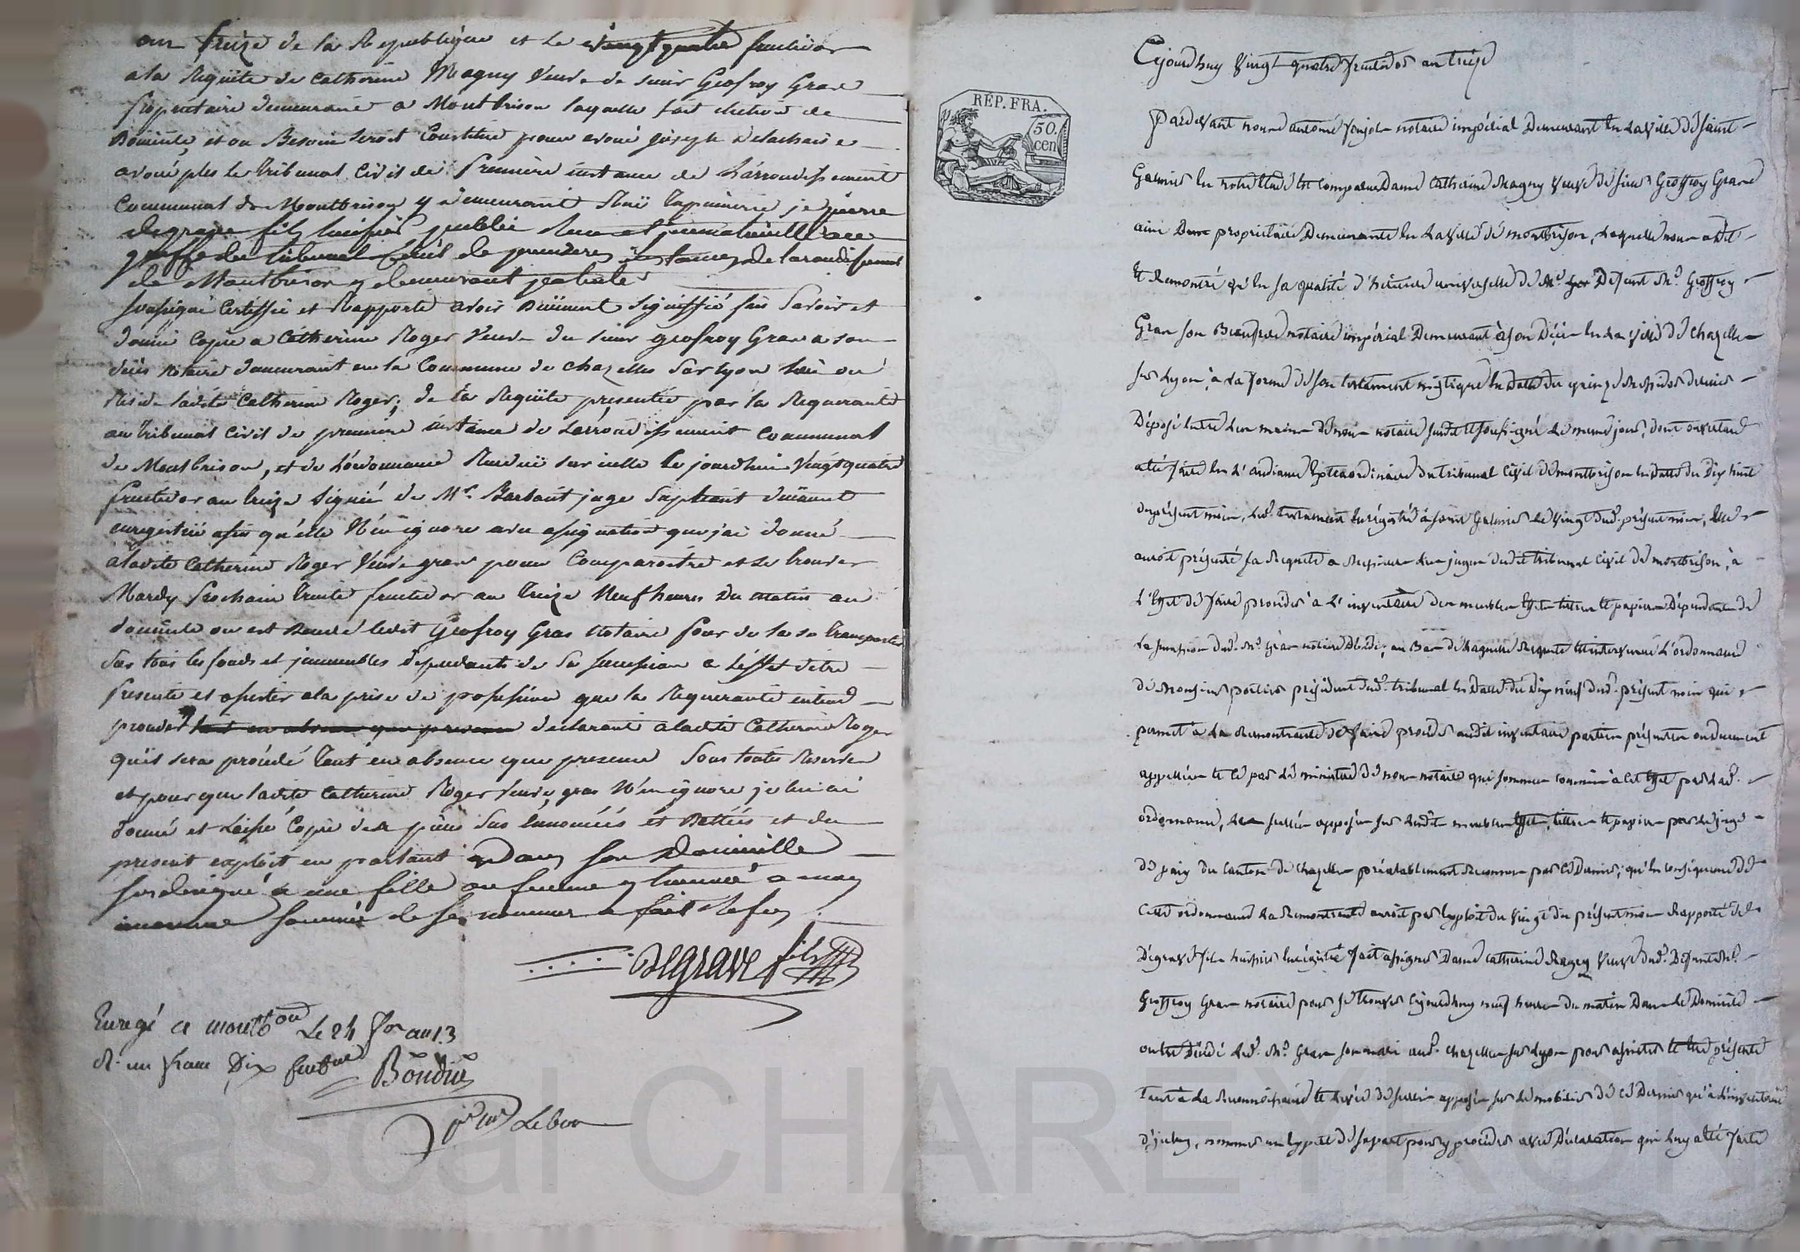 an treize de la Republique et le vingt quatre fructidor
a la Requête de Catherine Magny Veuve de sieur Geofroy Gras
propriétaire demeurant a Montbrison laquelle fait élection de
Domicile, et ou Besoin seroit Constitue pour avoué joseph Delachaise
avoué près le tribunal Civil de premiere instance de L'arrondissement
Communal de Montbrison y demeurant Ruë tupinerie je pierre
degrave fils huissier publié
greffe du tribunal Civil de premiere instance de L'arondissement
de Montbrison y demeurant patenté
soussigné Certiffie et Rapporte avoir Duëment signiffié fait savoir et
donné Copie a Catherine Roger Veuve du sieur geofroy Gras a son
décès Notaire demeurant en la Commune de chazelles sur lyon
Réside ladite Catherine Roger, de la Requête presentée par la Requerante
au tribunal Civil de premiere instance de L'arrondissement Communal
de Montbrison, et de L'ordonnance Rendue sur icelle Le jourdhui Vingt quatre
fructidor an treize signée de Mr. Barbant juge supleant duëment
enregistrée afin qu'elle N'en ignore avec assignation que j'ai donné
a ladite Catherine Roger Veuve gras pour Comparoitre et se trouver
Mardy prochain trente fructidor an treize Neuf heures Du matin au
domicile ou est decedé ledit Geofroy Gras Notaire pour de la se transporter
sur tous les fonds et jmmeubles dépendants de sa succession a L'effet d'être
presente et assister a la prise de possession que la Requerante entend
prendre tant en absence que presence declarant a ladite Catherine Roger
qu'il sera procédé tant en absence que presence sous toutes Reserves
et pour que ladite Catherine Roger Veuve gras N'en ignore je lui ai
donné et Laissé Copie des pièces sus Enoncées et Dattées et du
present exploit en parlant dans son Domicille
susdesigné a une fille ou femme y trouvée a moy
inconnue sommée de se nommer a fait Refus
Degrave fils
Enregé a montbon Le 24 for an 13
R. un franc Dix centmes Boudin
pr mr Lebon
Cejourdhuy Vingt quatre fructidor an treize
RÉP. FRA.
50. cen
Pardevant nous antoine notaire impérial Demeurant En La ville de saint
Galmier En notre Etude Est Comparue Dame Catherine Magny Veuve de sieur Geoffroy Gras
ainé Dame propriétaire Demeurante En La Ville de montbrison, Laquelle nous a Dit
Et Remontré qu'En sa qualité d'héritière universelle de Défunt Mr. Geoffroy
Gras son Beaufrere notaire impérial Demeurant à son Décès En La Ville de chazelles
sur Lyon, à La forme de son testament mistique En Datte du quinze Messidor Dernier
Déposé Entre Les mains de nous notaire susdit et soussigné Le meme jour, dont ouverture
a été faite En L'audiance Extraordinaire du tribunal Civil de montbrison En Datte du Dix huit
du présent mois, Led. testament Enregistré à saint Galmier Le Vingt dud. présent mois, Elle
auroit présenté sa Requête a Messieurs Les juges dudit tribunal Civil de montbrison, à
L'Effet de faire procéder à L'inventaire des meubles Effets titres et papiers Dépendants de
La succession dud. Mr. Gras notaire Décédé; au Bas de Laquelle Requête Est intervenue L'ordonnance
de Monsieur portier président dud. tribunal En Datte du Dix neuf dud. présent mois qui
permet à La Remontrante de faire procéder audit inventaire parties présentes ou duement
appellées et Ce par Le ministère de nous notaire qui sommes commis à Cet Effet par Lad.
ordonnance, Les scellés apposés sur Lesdits meubles Effets, titres et papiers par Le juge
de paix du Canton de chazelles préalablement Reconnus par Ce Dernier; qu'En Conséquence de
Cette ordonnance La Remontrante auroit par Exploit du Vingt du présent mois Rapporté de
Degrave fils huissier Enrégistré fait assigner Dame Catherine Roger Veuve dud. Défunt Mr.
Geoffroy Gras notaire pour se trouver Cejourdhuy neuf heures du matin Dans Le Domicile
ou Est Décédé Led. Mr. Gras son mari aud. chazelles sur Lyon pour assister et Etre présente
tant à La Reconnoissance et Levée des scellés apposés sur Le mobilier de Ce Dernier qu'à L'inventaire
d'jcelui, nommer un Expert de sa part pour y procéder avec Déclaration qui Luy a été faite